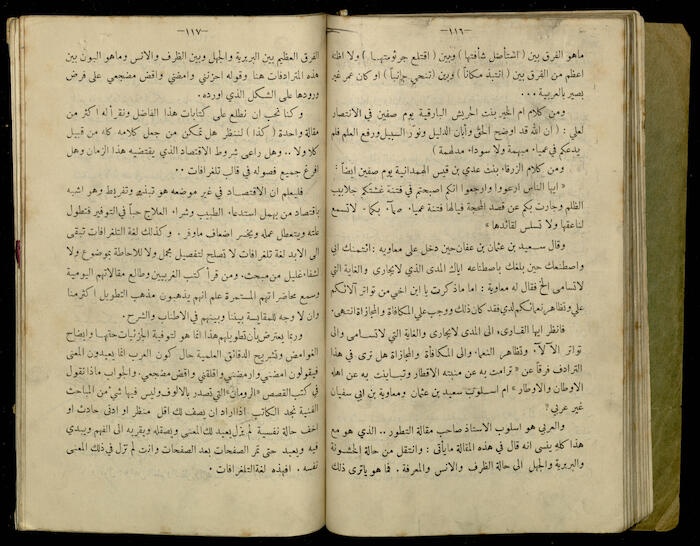 — ١١٦ —
ماهو الفرق بين ( استأصل شأفتها ) وبين ( اقتلع جرثومتهـا ) ولا اظنه
اعظم من الفرق بين ( انتبذ مكاناً ) وبين ( تنحى جانباً ) او كان عمر غير
بصير بالعربية ٠٠٠
ومن كلام ام الخير بنت الحريش البارقية يوم صفين في الانتصار
لعلي : ( ان الله قد اوضح الحق وأبان الدليل ونوّر السبيل ورفع العلم فلم
يدعكم في عمياء مبهمة ولا سوداء مدلهمة )
ومن كلام الزرقاء بنت عدي بن قيس الهمدانية يوم صفين ايضاً :
« ايها الناس ارعووا وارجعوا انكم اصبحتم في فتنة غشتكم جلابيب
الظلم وجارت بكم عن قصد المحجة فيالها فتنة عمياء صماء بكماء لاتسمع
لناعقها ولا تسلس لقائدها »
وقال سعيد بن عثمان بن عفان حين دخل على معاوية : ائتمنك ابي
واصطنعك حين بلغك باصطناعه اياك المدى الذي لايجارى والغاية التي
لاتسامى الخ فقال له معاوية : اما ماذكرت يا ابن اخي من تواتر آلائكم
علي وتظاهر نعمائكم لدي فقد كان ذلك ووجب علي المكافأة والمجازاة انتهى.
فانظر ايها القارىء الى المدى لايجارى والغاية التي لاتسامى والى
تواتر الآلاء وتظاهر النعماء والى المكافأة والمجازاة هل ترى في هذا
الترادف فرقاً عن « ترامت به عن منبته الاقطار وتباينت به عن اهله
الاوطان والاوطار » ام اسلوب سعيد بن عثمان ومعاوية بن ابي سفيان
غير عربي ؟
والعربي هو اسلوب الاستاذ صاحب مقالة التطور ٠٠ الذي هو مع
هذا كله ينسى انه قال في هذه المقالة مايأتى : وانتقل من حالة الخشونة
والبربرية والجهل الى حالة الظرف والانس والمعرفة . فما هو ياترى ذلك
— ١١٧ —
الفرق العظيم بين البربرية والجهل وبين الظرف والانس وماهو البون بين
هذه المترادفات هنا وقوله احزنني وامضني واقض مضجعي على فرض
ورودها على الشكل الذي اورده .
وكنا نحب ان نطلع على كتابات هذا الفاضل ونقرأ له اكثر من
مقالة واحدة ( كذا ) لننظر هل تمكن من جعل كلامه كله من قبيل
كلا ولا ٠٠ وهل راعى شروط الاقتصاد الذي يقتضيه هذا الزمان وهل
افرغ جميع فصوله في قالب تلغرافات ٠٠
فليعلم ان الاقتصـاد في غير موضعه هو تبذير وتفريط وهو اشبه
باقتصاد من يهمل استدعاء الطبيب وشراء العلاج حباً في التوفير فتطول
علته ويتعطل عمله ويخسر اضعاف ماوفر . وكذلك لغة التلغرافات تبقى
الى الابد لغة تلغرافات لا تصلح لتفصيل مجمل ولا للاحاطة بموضوع ولا
لشفاء غليل من مبحث. ومن قرأ كتب الغربيين وطالع مقالاتهم اليومية
وسمع محاضراتهم المستمرة علم انهم يذهبون مذهب التطويل اكثر منا
وان لا وجه للمقايسة بيننا وبينهم في الاطناب والشرح.
وربما يعترض بأن تطويلهم هذا انما هو لتوفية الجزئيات حقها وايضاح
الغوامض وتشريح الدقائق العلمية حال كون العرب انما يعيدون المعنى
فيقولون امضني وارمضني واقلقني واقض مضجعي. والجواب ماذا نقول
في كتب القصص «الرومان» التي تصدر بالالوف وليس فيها شيء من المباحث
الفنية نجد الكاتب اذا اراد ان يصف لك اقل منظر او ادنى حادث او
اخف حالة نفسية لم يزل يعيد لك المعنى ويصقله ويقربه الى الفهم ويبدي
فيه ويعيد حتى تمر الصفحات بعد الصفحات وانت لم تزل في ذلك المعنى
نفسه . افهذه لغة التلغرافات .